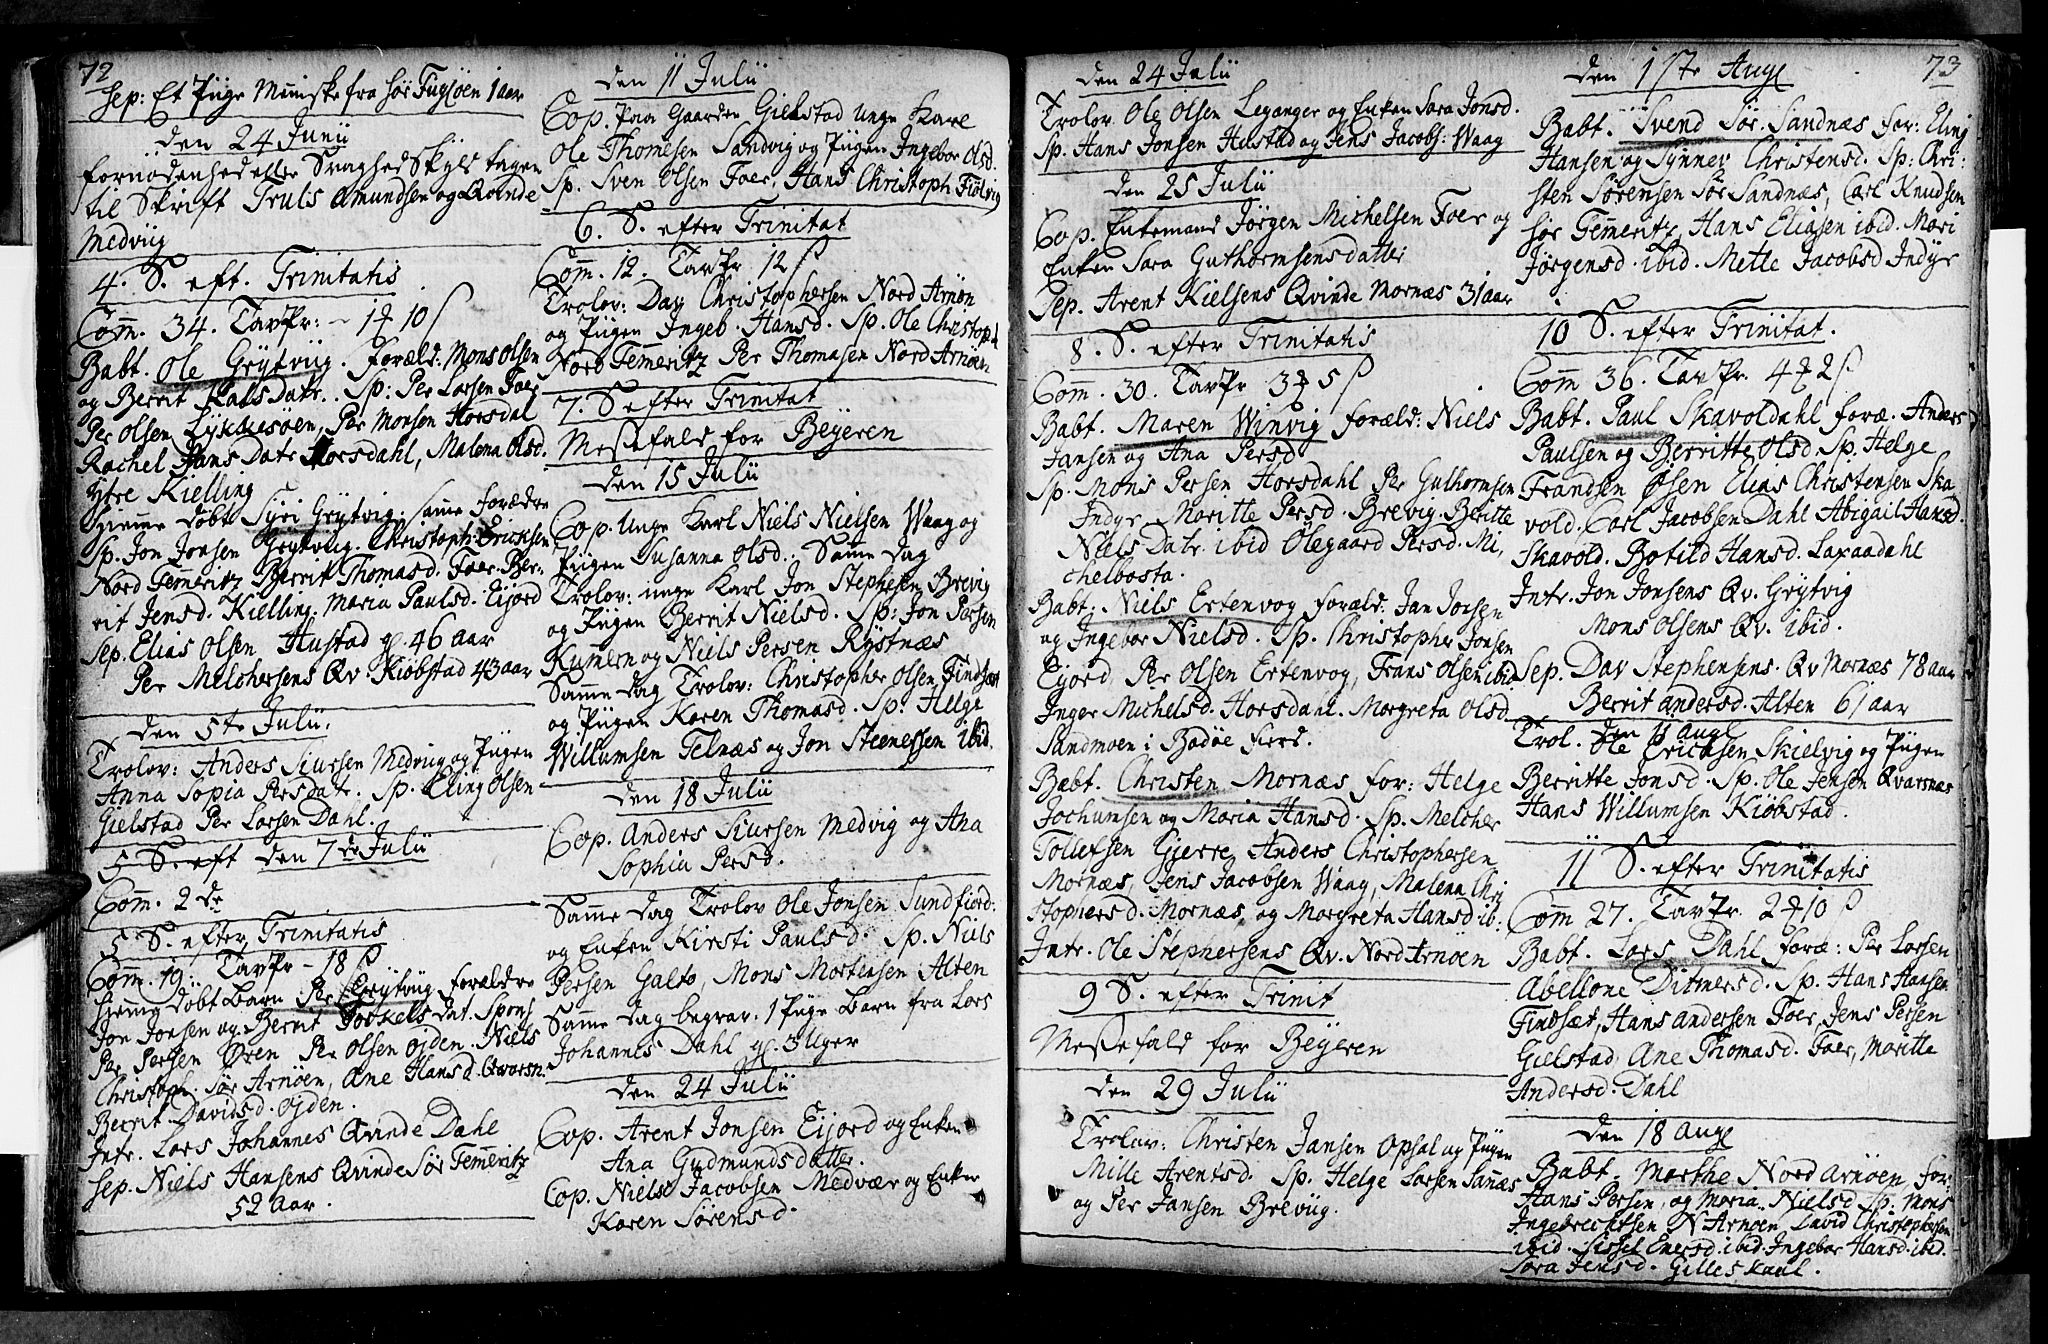 72
Sep: Et Pige Menniske fra Sør Fugløen 1 aar
den 24 Junii
fornødenhed eller Svaghed Skyld tagen
til Skrift Truls Amundsen og Qvinde
Medviig
4. S. eft. Trinitatis
Com̄. 34. TavPr: – 1 10 ß
Babt. Ole Grytviig. foræld: Mons Olsen
og Berrit PalsDatr. Sp: Per Larsen Foer
Per Olsen Lykkesøen, Per Monsen Horsdal
Rachel HansDatr Horsdahl, Malena Olsd.
Ytre Kielling
hiemme døbt Syri Grytvig. samme forældre
Sp. Jon Jonsen Grytviig. Christoph: Ericksen
Nord Tem̄eritz Berrit Thomasd. Foer. Ber-
rit Jensd. Kielling. Maria Paulsd. Eijord
Sep. Elias Olsen Hustad gl. 46 aar
Per Melchersens Qv. Kiøbstad 43 aar
den 5te Julii.
Trolov: Anders Siursen Medviig og Piigen
Anna Sopia PersDatr. Sp. Eling Olsen
Gielstad Per Larsen Dahl.
5 S. eft den 7de Julii
Com̄. 2 de
5. S. efter Trinitatis
Com. 19: TavPr – 18 ß
hiem̄e døbt Barn: Per Grytviig forældre
Jon Jonsen og Berrit Torkels Dat. Spons
Per Persen Øren Per Olsen Ojden. Niels
Christoph: Sør Arnøen, Ane Hansd. Qvarsn.
Berrit Davidsd. Ojden.
Intr. Lars Johannes Qvinde Dahl
Sep. Niels Hansens Qvinde Sør Tem̄eritz
52 Aar.
den 11 Julii
Cop. Paa Gaarden Gielstad Unge Karl
Ole Thomesen Sandvig og Piigen Ingebor Olsd.
Sp. Sven Olsen Foer, Hans Christoph Fiølvig
6. S. efter Trinitat
Com̄. 12. TavPr 12 ß
Trolov: Dav Christophersen Nord Arnøn
og Piigen Ingeb. Hansd. Sp. Ole Christoph
Nord Temeritz Per Thomasen Nord Arnøen
7. S efter Trinitat
Messefald for Bejeren
den 15 Julii
Cop. Unge Karl Niels Nielsen Waag og
Piigen Susanna Olsd. Samme Dag
Trolov: unge Karl Jon Stephesen Brevig
og Piigen Berrit Nielsd. Sp: Jon Persen
Kumern og Niels Persen Rystnæs
Samme Dag Trolov: Christopher Olsen Findset
og Piigen Karen Thomasd. Sp. Helge
Willumsen Telnæs og Jon Steenessen ibid.
den 18 Julii
Cop. Anders Siursen Medvig og Ana
Sophia Persd.
Samme Dag Trolov Ole Jonsen Sundfiord:
og Enken Kirsti Paulsd. Sp. Niels
Persen Galto, Mons Mortensen Alten
Samme Dag begrav: 1 Pige Barn fra Lars
Johannes Dahl gl. 3 Uger
den 24 Julii
Cop. Arent Jonsen Eijord og Enken
Ana Gudmundsdatter.
Cop. Niels Jacobsen Medvær og Enken
Karen Sørensd.
73
den 24 Julii
Trolov. Ole Olsen Leganger og Enken Sara Jonsd.
Sp. Hans Jonsen Hustad og Jens Jacobs: Waag
den 25 Julii
Cop. Enkemand Jørgen Michelsen Foer og
Enken Sara Guthormsensdatter
Sep. Arent Kielsens Qvinde Mornæs 31 aar
8. S. efter Trinitatis
Com̄. 30. TavPr 3 5 ß
Babt. Maren Winvig foræld: Niels
Jansen og Ana Persd.
Sp. Mons Persen Horsdahl Per Guthormsen
Indyr Maritte Persd. Brevig. Beritte
Niels Datr. ibid Olegaard Persd. Mi-
chelbosta.
Babt. Niels Ertenvog foræld: Jan Jonsen
og Ingebor Nielsd. Sp. Christopher Jonsen
Eijord Per Olsen Ertenvog, Frans Olsen ibid
Inger Michelsd. Horsdahl. Morgreta Olsd.
Sandmoen i Bodøe fierd.
Babt. Christen Mornæs for: Helge
Jochumsen og Maria Hansd. Sp. Melcher
Tollefsen Gjerre Anders Christophersen
Mornæs, Jens Jacobsen Waag, Malena Chri
stophersd. Mornæs, og Morgreta Hansd ib.
Intr. Ole Stephersens Qv. Nord Arnøen
9 S. efter Trinit
Messefald for Bejeren
den 29 Julii
Trolov: Christen Jansen Opsal og Piigen
Mille Arentsd. Sp. Helge Larsen Sanæs
og Per Jansen Brevig.
den 1ste Augl
Babt. Svend Sør Sandnæs for: Eling
Hansen og Synnev Christensd. Sp: Chri-
sten Sørensen Sør Sandnæs, Carl Knudsen
Sør Tem̄eritz, Hans Eliasen ibid. Mari
Jørgensd. ibid. Mette Jacobsd Indyr
10 S. efter Trinitat.
Com̄ 36. TavPr. 4 2 ß
Babt. Paul Skavoldahl foræ. Anders
Paulsen og Berritte Olsd. Sp. Helge
Frandsen Osen Elias Christensen Ska
vold. Carl Jacobsen Dahl Abigail Hansd.
Skavold. Botild Hansd. Laxaadahl
Intr. Jon Jonsens Qv. Grytvig
Mons Olsens Qv. ibid.
Sep. Dav Stephensens Qv Mornæs 78 aar
Berrit Andersd. Alten 61 aar
den 11 Augl
Trol. Ole Ericksen Skielvig og Piigen
Berritte Jonsd. Sp. Ole Jensen Qvarsnæs
Hans Willumsen Kiøbstad.
11 S. efter Trinitatis
Com̄ 27. TavPr. 2 10 ß
Babt. Lars Dahl foræ: Per Larsen
Abellone Ditmersd. Sp. Hans Hansen
Findsæt, Hans Andersen Foer, Jens Persen
Gielstad Ane Thomasd. Foer, Maritte
Andersd. Dahl
den 18 Augl
Babt. Marthe Nord Arnøen for:
Hans Persen, og Maria Nielsd Sp. Mons
Ingebrechtsen N Arnøen David Christophersen
ibid. Sissel Enersd. ibid. Ingebor Hansd. ibid.
Sara Jensd. Gilleskaul.